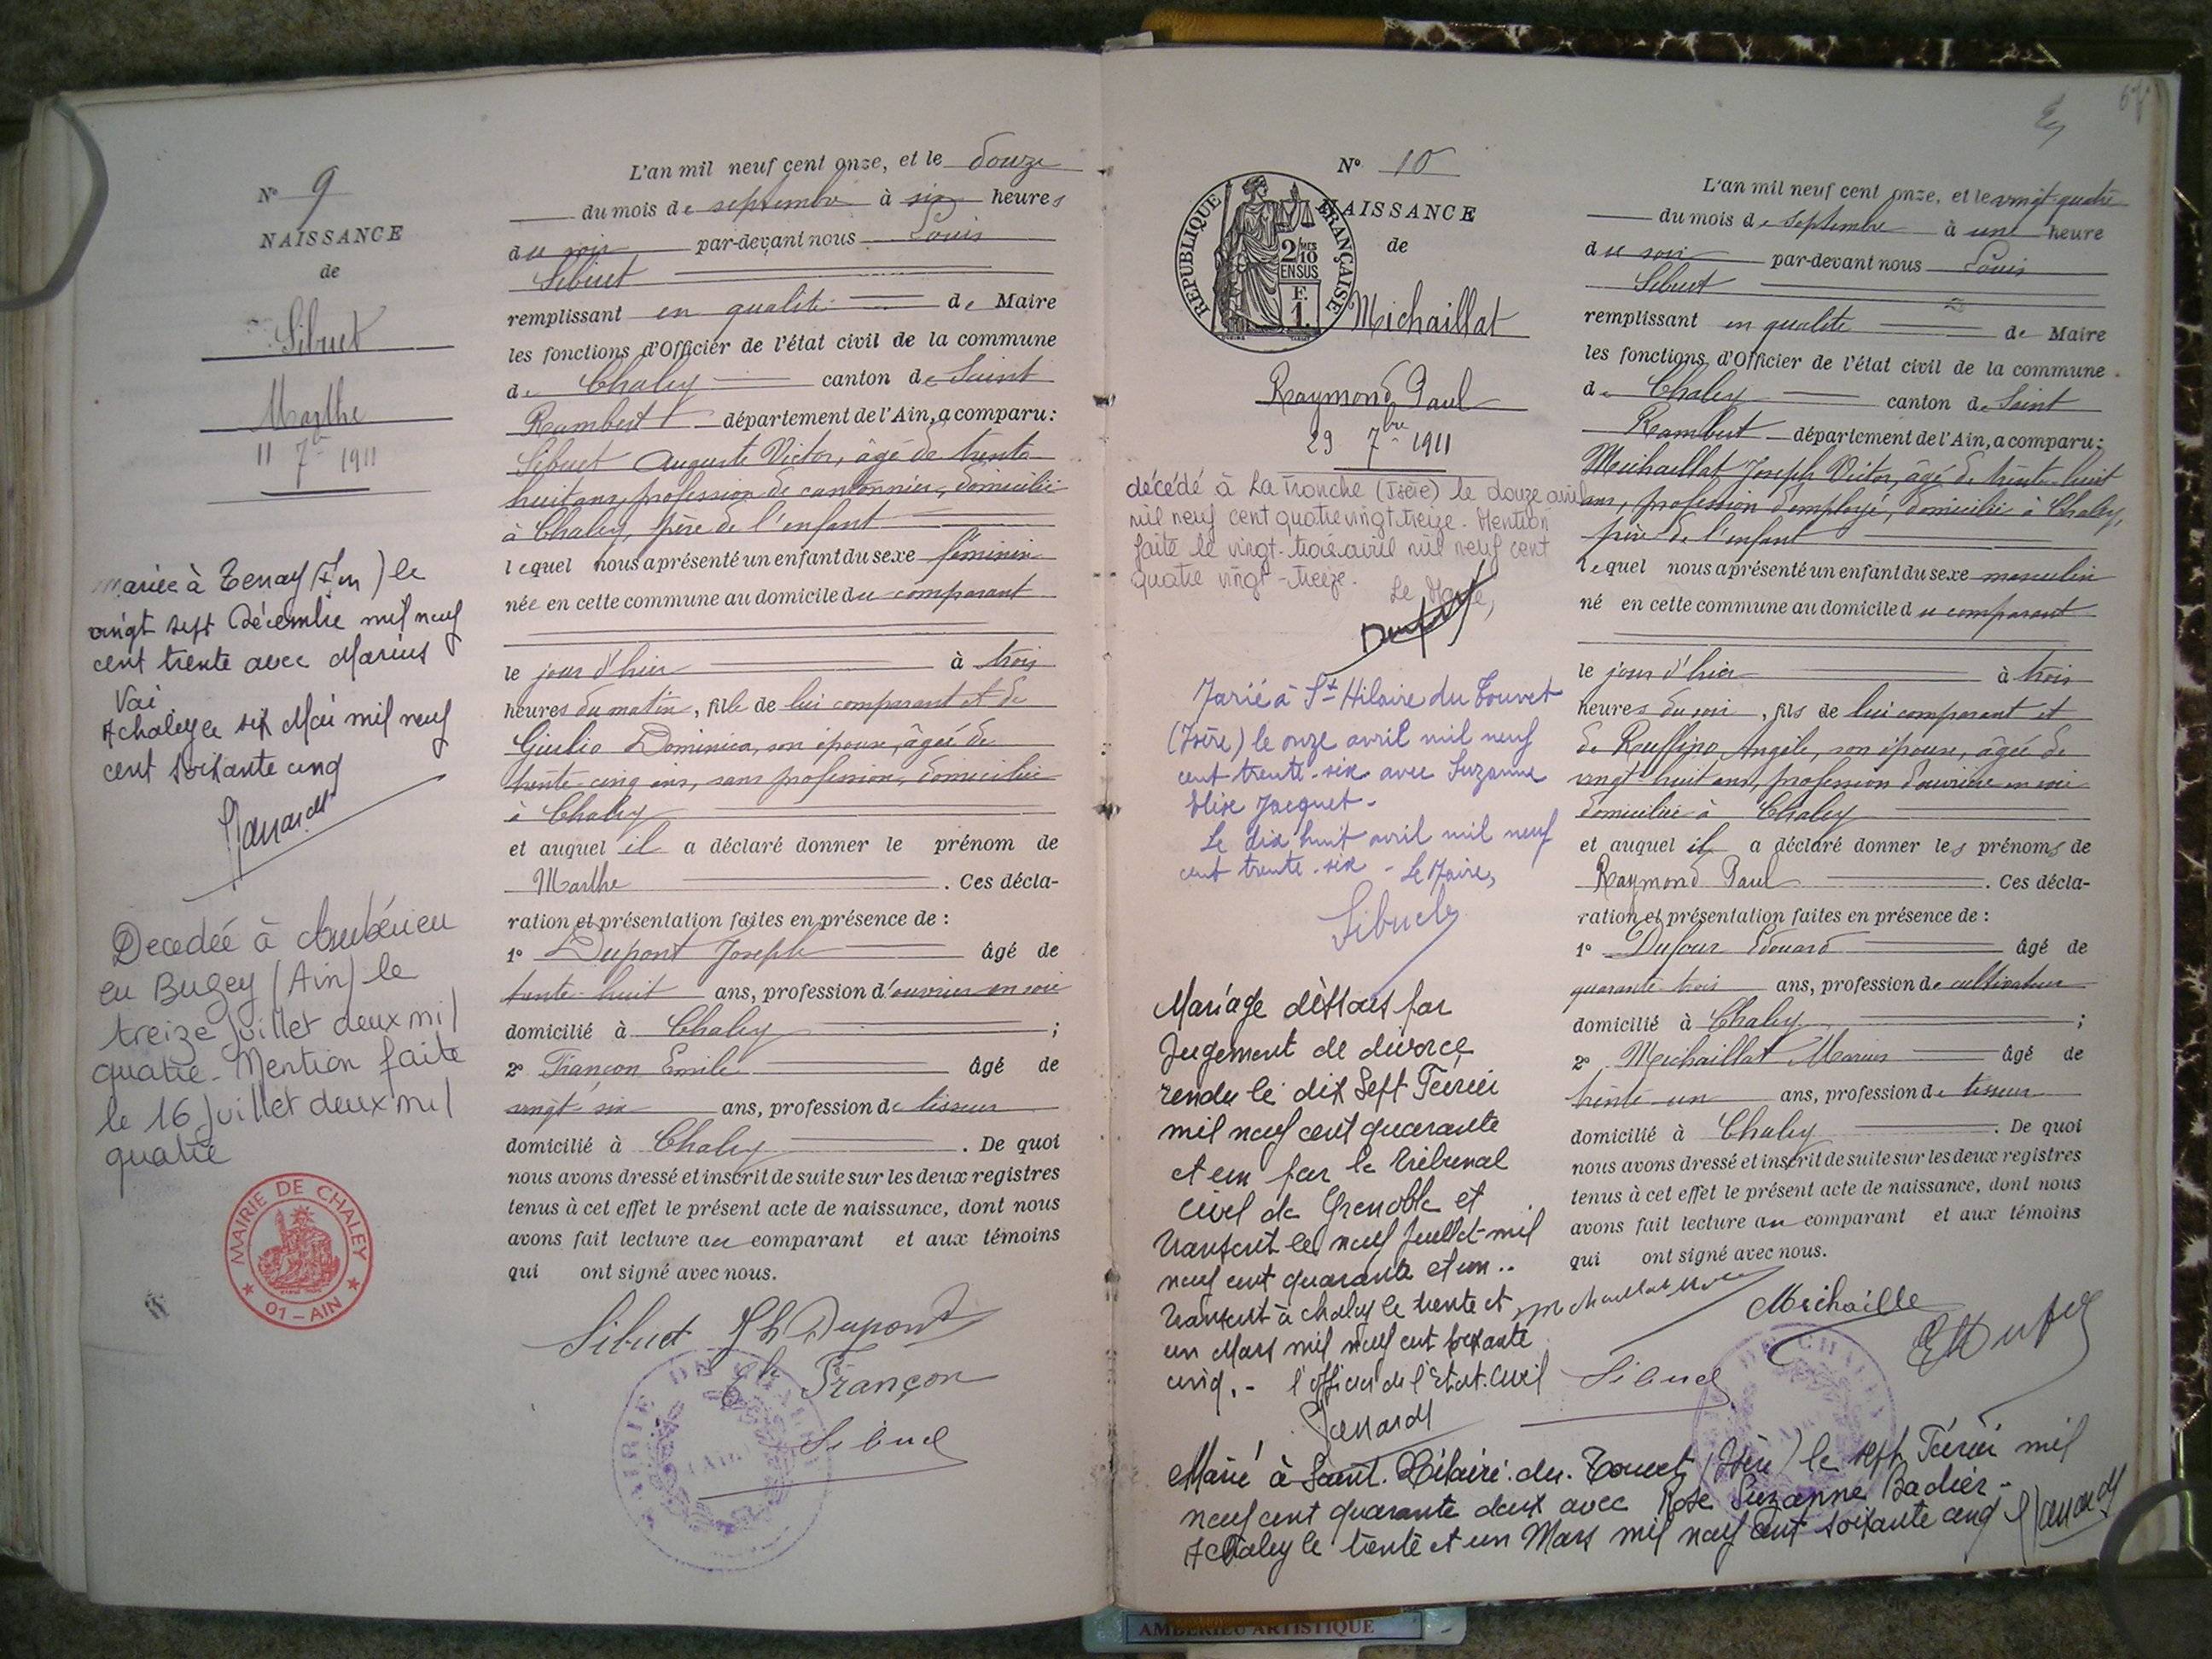 N° 9
NAISSANCE
de
Sibuet
Marthe
11 7bre 1911
mariée à Tenay (Ain) le
vingt sept Décembre mil neuf
cent trente avec Marius
Vai
A chaley le six Mai mil neuf
cent soixante cinq
Decedée à Ambérieu
en Bugey (Ain) le
treize Juillet deux mil
quatre. Mention faite
le 16 Juillet deux mil
quatre
MAIRIE DE CHALEY
01 - AIN
L'an mil neuf cent onze, et le douze
du mois de septembre à six heures
du soir par-devant nous Louis
Sibuet
remplissant en qualité de Maire
les fonctions d'Officier de l'état civil de la commune
de Chaley canton de Saint
Rambert département de l'Ain, a comparu :
Sibuet Auguste Victor, âgé de trente
huit ans, profession de cantonnier, domicilié
à Chaley, père de l'enfant
lequel nous a présenté un enfant du sexe féminin
née en cette commune au domicile du comparant
le jour d'hier à trois
heures du matin, fille de lui comparant et de
Giulio Dominica, son épouse, âgée de
trente-cinq ans, sans profession, domiciliée
à Chaley
et auquel il a déclaré donner le prénom de
Marthe. Ces décla-
ration et présentation faites en présence de :
1° Dupont Joseph âgé de
trente-huit ans, profession d'ouvrier en soie
domicilié à Chaley ;
2° Françon Emile âgé de
vingt-six ans, profession de tisseur
domicilié à Chaley. De quoi
nous avons dressé et inscrit de suite sur les deux registres
tenus à cet effet le présent acte de naissance, dont nous
avons fait lecture au comparant et aux témoins
qui ont signé avec nous.
Sibuet Jh Dupont
Françon
Sibuet
N° 10
NAISSANCE
de
REPUBLIQUE FRANÇAISE
2/10 EN SUS
F. 1.
Michaillat
Raymond Paul
23 7bre 1911
décédé à La Tronche (Isère) le douze avril
mil neuf cent quatre vingt treize. Mention
faite le vingt-trois avril mil neuf cent
quatre vingt-treize. Le Maire,
Marié à St Hilaire du Touvet
(Isère) le onze avril mil neuf
cent trente-six avec Suzanne
Elise Jacquet.
Le dix huit avril mil neuf
cent trente-six - Le Maire,
Sibuet
Mariage dissous par
Jugement de divorce
rendu le dix Sept Février
mil neuf cent quarante
et un par le tribunal
civil de Grenoble et
transcrit le neuf Juillet mil
neuf cent quarante et un..
transcrit à chaley le trente et
un Mars mil neuf cent soixante
cinq. - l'officier de l'Etat-Civil
L'an mil neuf cent onze, et le vingt-quatre
du mois de septembre à une heure
du soir par-devant nous Louis
Sibuet
remplissant en qualité de Maire
les fonctions d'Officier de l'état civil de la commune
de Chaley canton de Saint
Rambert département de l'Ain, a comparu :
Michaillat Joseph Victor, âgé de trente-huit
ans, profession d'employé, domicilié à Chaley,
père de l'enfant
lequel nous a présenté un enfant du sexe masculin
né en cette commune au domicile du comparant
le jour d'hier à trois
heures du soir, fils de lui comparant et
de Ruffino Angèle, son épouse, âgée de
vingt-huit ans, profession d'ouvrière en soie
domiciliée à Chaley
et auquel il a déclaré donner les prénoms de
Raymond Paul. Ces décla-
ration et présentation faites en présence de :
1° Dufour Edouard âgé de
quarante-trois ans, profession de cultivateur
domicilié à Chaley ;
2° Michaillat Marius âgé de
trente-un ans, profession de tisseur
domicilié à Chaley. De quoi
nous avons dressé et inscrit de suite sur les deux registres
tenus à cet effet le présent acte de naissance, dont nous
avons fait lecture au comparant et aux témoins
qui ont signé avec nous.
Sibuet
Marié à Saint-Hilaire du Touvet (Isère) le sept Février mil
neuf cent quarante deux avec Rose Suzanne Badier -
A Chaley le trente et un Mars mil neuf cent soixante cinq
AMBERIEU ARTISTIQUE